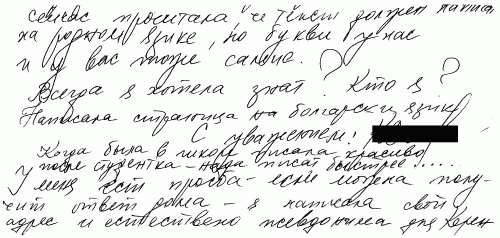 сейчас прочитала, че текст должен написа
на родном язике, но букви у нас
и у вас тоже самие.?
Всегда я хотела знат? Кто я?
Написала страница на болгарски язике
С уважением!
Когда была в школе писала красиво
после студентка – надо писат быстрее.....
У меня ест просба – если можена полу-
чит ответ дома – я написала свой
адрес и естествено псевдонима для